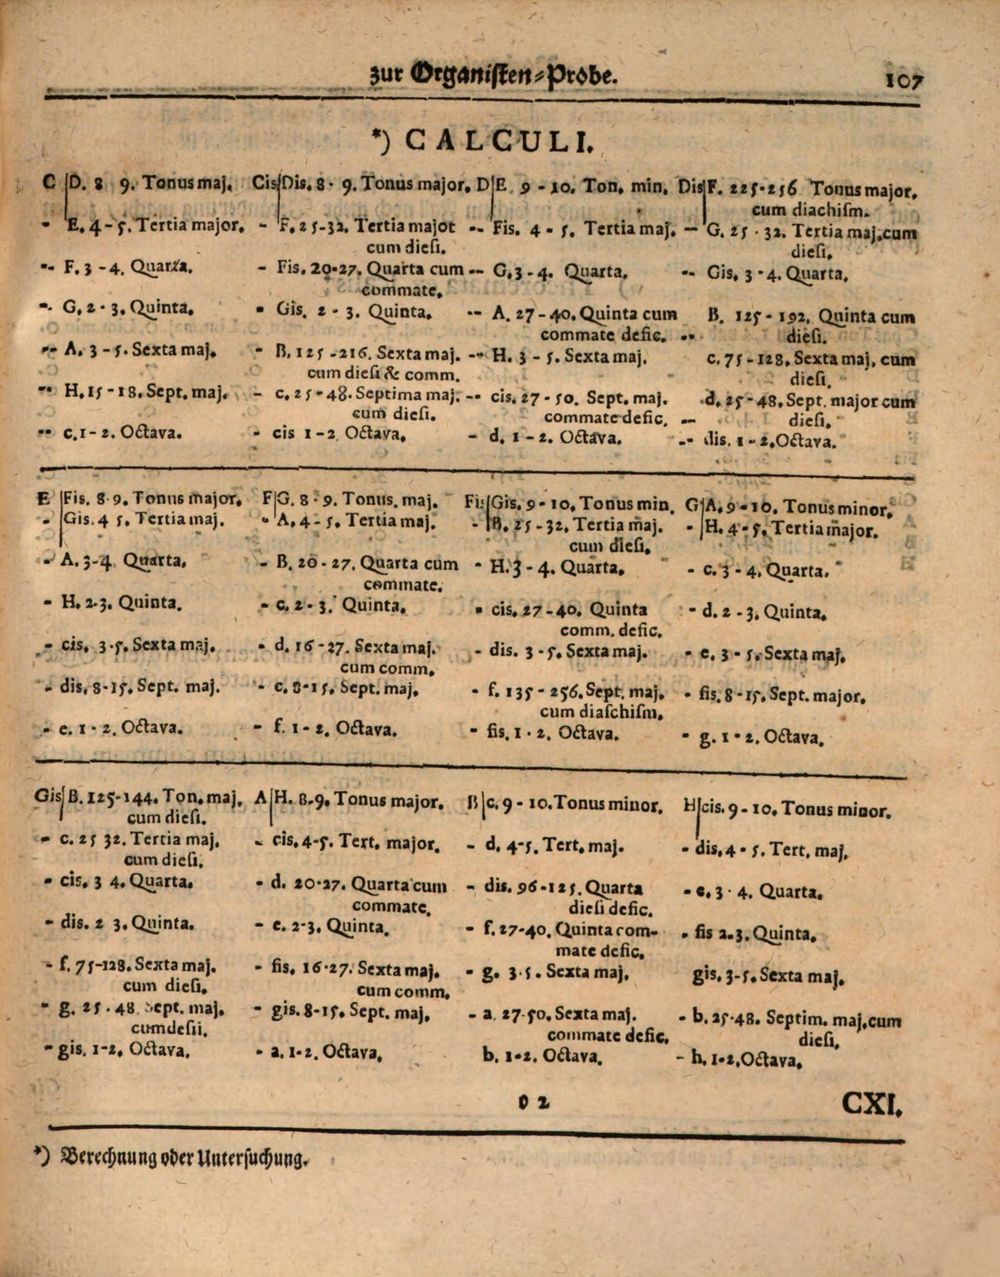 zur Organisten-Probe. 107
*) CALCULI.
C D. 8 9. Tonus maj.
- E. 4-5. Tertia major.
-- F. 3-4. Quarta.
-- G. 2-3. Quinta.
-- A. 3-5. Sexta maj.
-- H. 15-18. Sept. maj.
-- c. 1-2. Octava.
Cis Dis. 8-9. Tonus major.
- F. 25-32. Tertia major
cum diesi.
- Fis. 20-27. Quarta cum
commate.
- Gis. 2-3. Quinta.
- B. 125-216. Sexta maj.
cum diesi & comm.
- c. 25-48. Septima maj.
cum diesi.
- cis 1-2 Octava.
D E 9-10. Ton. min.
-- Fis. 4-5. Tertia maj.
-- G. 3-4. Quarta.
-- A. 27-40. Quinta cum
commate defic.
-- H. 3-5. Sexta maj.
-- cis. 27-50. Sept. maj.
commate defic.
- d. 1-2. Octava.
Dis F. 225-256 Tonus major.
cum diachism.
-- G. 25-32. Tertia maj. cum
diesi.
-- Gis. 3-4. Quarta.
B. 125-192. Quinta cum
-- diesi.
c. 75-128. Sexta maj. cum
diesi.
d. 25-48. Sept. major cum
-- diesi.
-- dis. 1-2. Octava.
E Fis. 8-9. Tonus major.
- Gis. 4 5. Tertia maj.
- A. 3-4. Quarta.
- H. 2-3. Quinta.
- cis. 3-5. Sexta maj.
- dis. 8-15. Sept. maj.
- e. 1-2. Octava.
F G. 8-9. Tonus. maj.
- A. 4-5. Tertia maj.
- B. 20-27. Quarta cum
commate.
- c. 2-3. Quinta.
- d. 16-27. Sexta maj.
cum comm.
- c. 8-15. Sept. maj.
- f. 1-2. Octava.
Fis Gis. 9-10. Tonus min.
- B. 25-32. Tertia maj.
cum diesi.
- H. 3-4. Quarta.
- cis. 27-40. Quinta
comm. defic.
- dis. 3-5. Sexta maj.
- f. 135-256. Sept. maj.
cum diaschism.
- fis. 1-2. Octava.
G A. 9-10. Tonus minor.
- H. 4-5. Tertia major.
- c. 3-4. Quarta.
- d. 2-3. Quinta.
- e. 3-5. Sexta maj.
- fis. 8-15. Sept. major.
- g. 1-2. Octava.
Gis B. 125-144. Ton. maj.
cum diesi.
- c. 25 32. Tertia maj.
cum diesi.
- cis. 3 4. Quarta.
- dis. 2 3. Quinta.
- f. 75-128. Sexta maj.
cum diesi.
- g. 25-48 Sept. maj.
cum desii.
- gis. 1-2. Octava.
A H. 8-9. Tonus major.
- cis. 4-5. Tert. major.
- d. 20-27. Quarta cum
commate.
- e. 2-3. Quinta.
- fis. 16-27. Sexta maj.
cum comm.
- gis. 8-15. Sept. maj.
- a. 1-2. Octava.
B c. 9-10. Tonus minor.
- d. 4-5. Tert. maj.
- dis. 96-125. Quarta
diesi defic.
- f. 27-40. Quinta com-
mate defic.
- g. 3-5. Sexta maj.
- a. 27-50. Sexta maj.
commate defic.
b. 1-2. Octava.
H cis. 9-10. Tonus minor.
- dis. 4-5. Tert. maj.
- e. 3-4. Quarta.
- fis 2-3. Quinta.
gis. 3-5. Sexta maj.
- b. 25-48. Septim. maj. cum
diesi.
- h. 1-2. Octava.
O 2 CXI.
*) Berechnung oder Untersuchung.